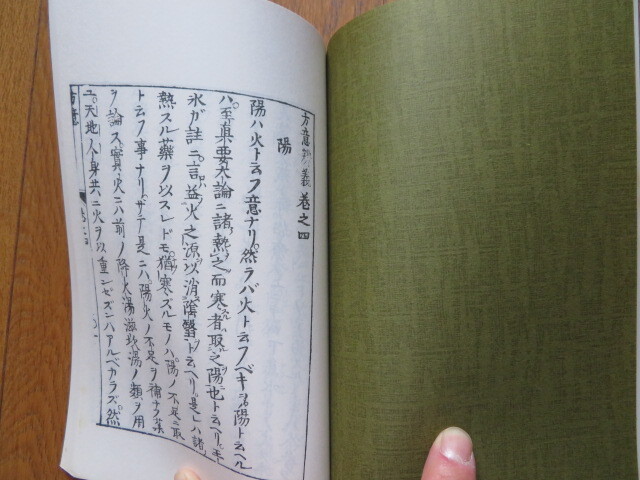 方意弁義卷之四
陽
陽ハ火ト云フ意ナリ然ラバ火ト云フベキヲ陽ト云ヘル
ハ至真要大論ニ諸熱之而寒者取之陽也ト云ヘリ王
氷ガ註ニ言益火之源以消陰翳ト云ヘリ是レハ諸
熱スル藥ヲ以スレドモ猶寒ズルモノハ陽ノ不足ニ取
ト云フ事ナリサテ是ニハ陽火ノ不足ヲ補ナフ薬
ヲ論ス實火ニハ前ノ降火湯滋坎湯ノ類ヲ用
ユ天地人身共ニ火ヲ以重ンゼズンハアルベカラズ然
方意